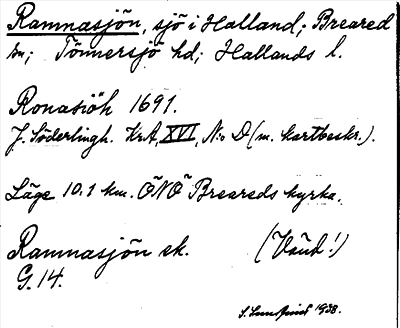 Ramnasjön, sjö i Halland; Breared
sn; Tönnersjö hd; Hallands l.
Ronasiöh 1691.
J. Söderlingh. KrA, XVI, N:o D (m. kartbeskr.).
Läge 10.1 km. ÖNÖ Breareds kyrka.
Ramnasjön ek. (Vänd!)
G. 14.
S. Lundquist 1938.